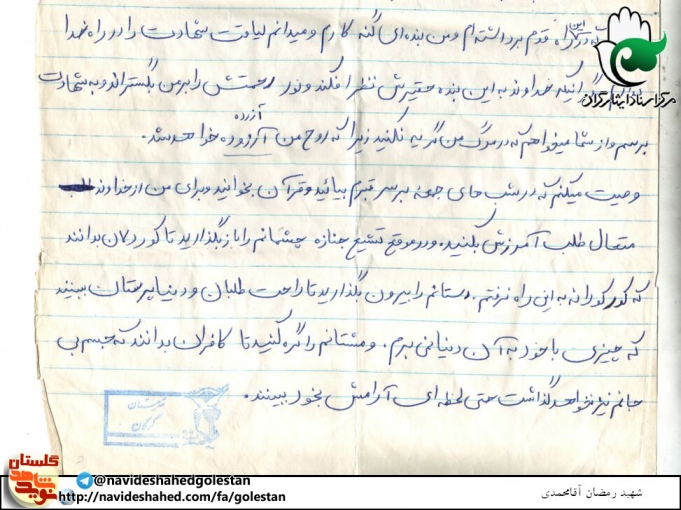 که در این راه قدم برداشته‌ام و من بنده‌ای گنه کارم و میدانم لیاقت شهادت را در راه خدا
ندارم مگر اینکه خداوند به این بنده حقیرش نظر افکند و نور رحمتش را بر من بگستراند و به شهادت
برسم و از شما میخواهم که در مرگ من گریه نکنید زیرا که روح من آزرده خواهد شد.
آزرده
وصیت میکنم که در شب های جمعه بر سر قبرم بیائید و قرآن بخوانید و برای من از خداوند
متعال طلب آمرزش بکنید. و در موقع تشیع جنازه چشمانم را باز بگذارید تا کوردلان بدانند
که کورکورانه به این راه نرفتم. دستانم را بیرون بگذارید تا راحت طلبان و دنیا پرستان ببینند
که چیزی با خود به آن دنیا نمی برم. و مشتانم را گره کنید تا کافران بدانند که جسم بی
جانم نیز نخواهد گذاشت حتی لحظه ای آرامش بخود ببینند.
مرکز اسناد ایثارگران
گلستان
نوید شاهد
@navideshahedgolestan
http://navideshahed.com/fa/golestan
شهید رمضان آقامحمدی